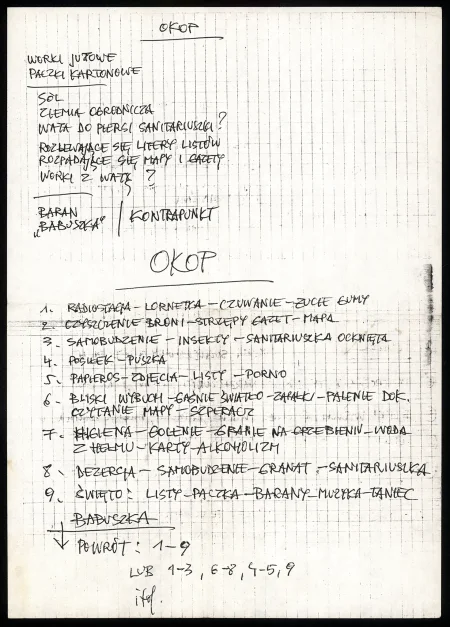 OKOP
WORKI JUTOWE
PACZKI KARTONOWE
SÓL
ZIEMIA OGRODNICZA
WATA DO PIERSI SANITARIUSZKI?
ROZLEWAJĄCE SIĘ LITERY LISTÓW
ROZPADAJĄCE SIĘ MAPY I GAZETY
WORKI Z WATĄ ?
BARAN
„BABUSZKA" | KONTRAPUNKT
OKOP
1. RADIOSTACJA - LORNETKA - CZUWANIE - ŻUCIE GUMY
2. CZYSZCZENIE BRONI - STRZĘPY GAZET - MAPA
3. SAMOBUDZENIE - INSEKTY - SANITARIUSZKA OCKNIĘTA
4. POSIŁEK - PUSZKA
5. PAPIEROS - ZDJĘCIA - LISTY - PORNO
6. BLISKI WYBUCH - GAŚNIE ŚWIATŁO - ZAPAŁKI - PALENIE DOK.
CZYTANIE MAPY - SZPERACZ
7. HIGIENA - GOLENIE - GRANIE NA GRZEBIENIU - WODA
Z HEŁMU - KARTY - ALKOHOLIZM
8. DEZERCJA - SAMOBUDZENIE - GRANAT - SANITARIUSZKA
9. ŚWIĘTO: LISTY - PACZKA - BARANY - MUZYKA - TANIEC
BABUSZKA
POWRÓT: 1-9
LUB 1-3, 6-8, 4-5, 9
itd.